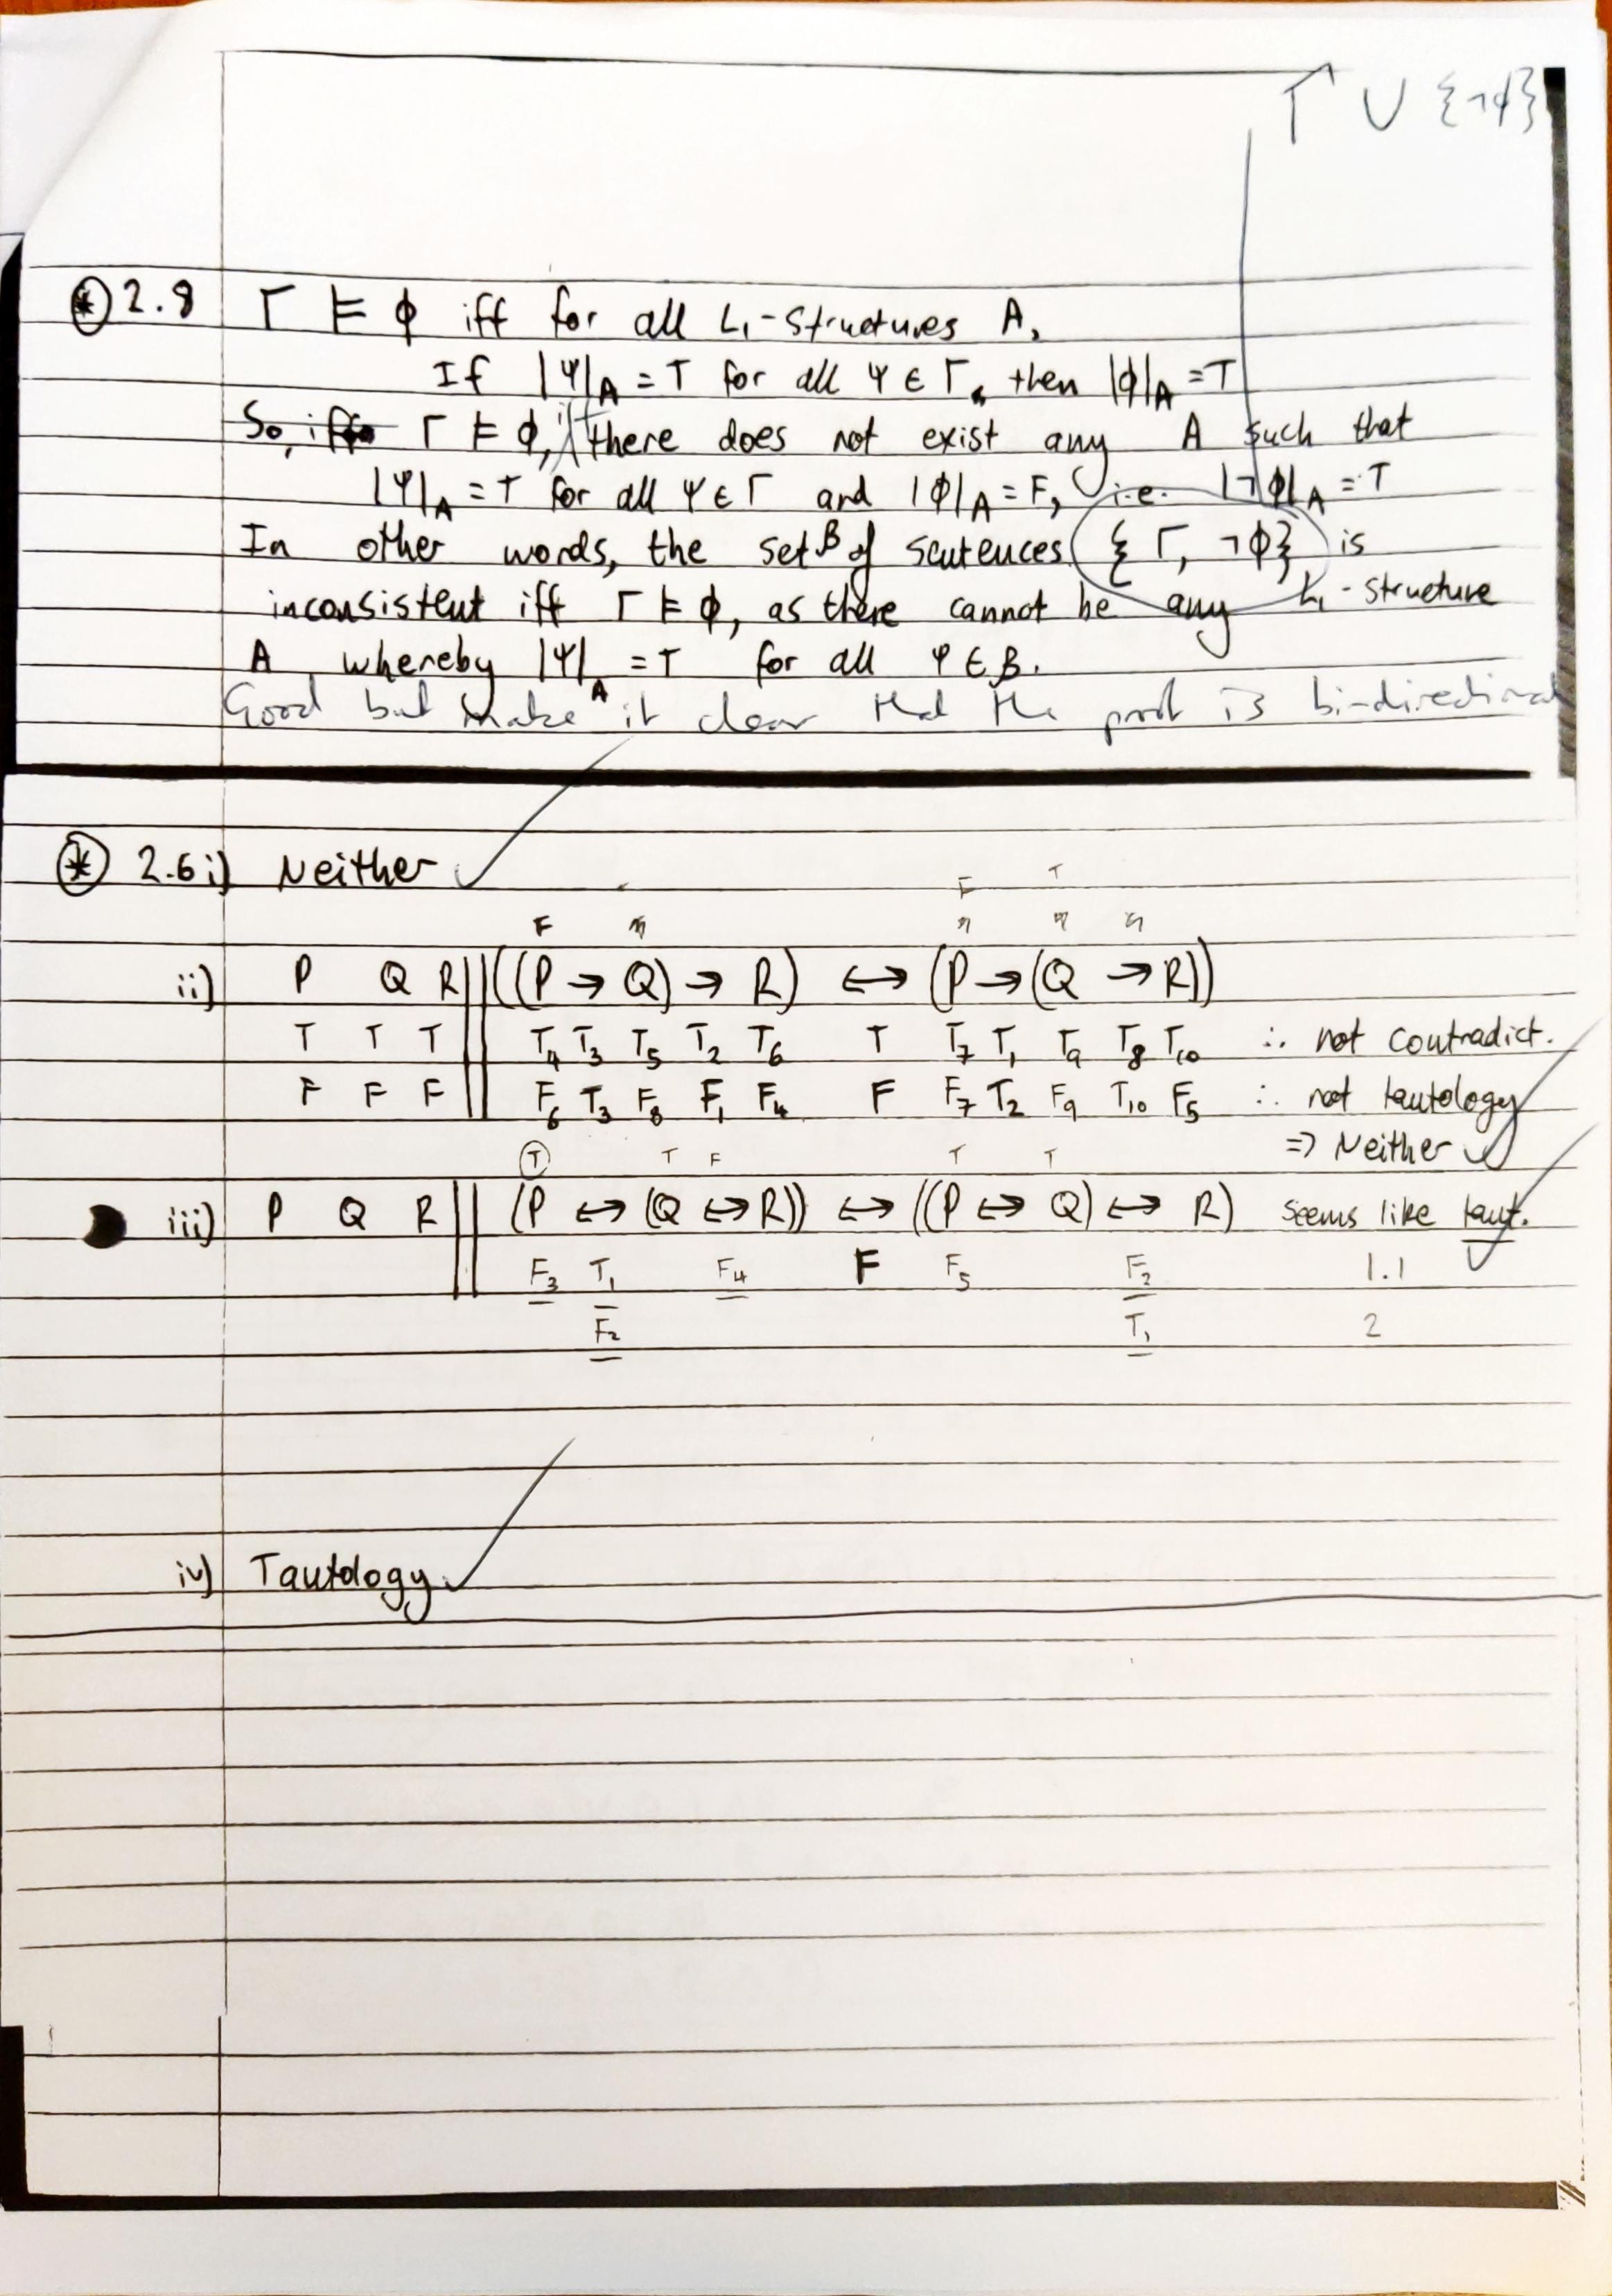 Γ ∪ {¬ϕ}
⊛ 2.8 Γ ⊨ ϕ iff for all L₁-Structures A,
If |Ψ|_A = T for all Ψ ∈ Γ, then |ϕ|_A = T
So, iff Γ ⊨ ϕ, iff there does not exist any A such that
|Ψ|_A = T for all Ψ ∈ Γ and |ϕ|_A = F, i.e. |¬ϕ|_A = T
In other words, the set B of sentences {Γ, ¬ϕ} is
inconsistent iff Γ ⊨ ϕ, as there cannot be any L₁-structure
A whereby |Ψ|_A = T for all Ψ ∈ B.
Good but make it clear that the proof is bi-directional
⊛ 2.6 i) Neither ✓
F T
F
ii) P Q R || ((P → Q) → R) ↔ (P → (Q → R))
T T T || T₄ T₃ T₅ T₂ T₆ T T₇ T₁ T₉ T₈ T₁₀ ∴ not contradict.
F F F || F₆ T₃ F₈ F₁ F₄ F F₇ T₂ F₉ T₁₀ F₅ ∴ not tautology
⇒ Neither ✓
Ⓣ T F T T
iii) P Q R || (P ↔ (Q ↔ R)) ↔ ((P ↔ Q) ↔ R) seems like taut. ✓
F₃ T₁ F₄ F F₅ F₂ 1.1
F₂ T₁ 2
iv) Tautology ✓